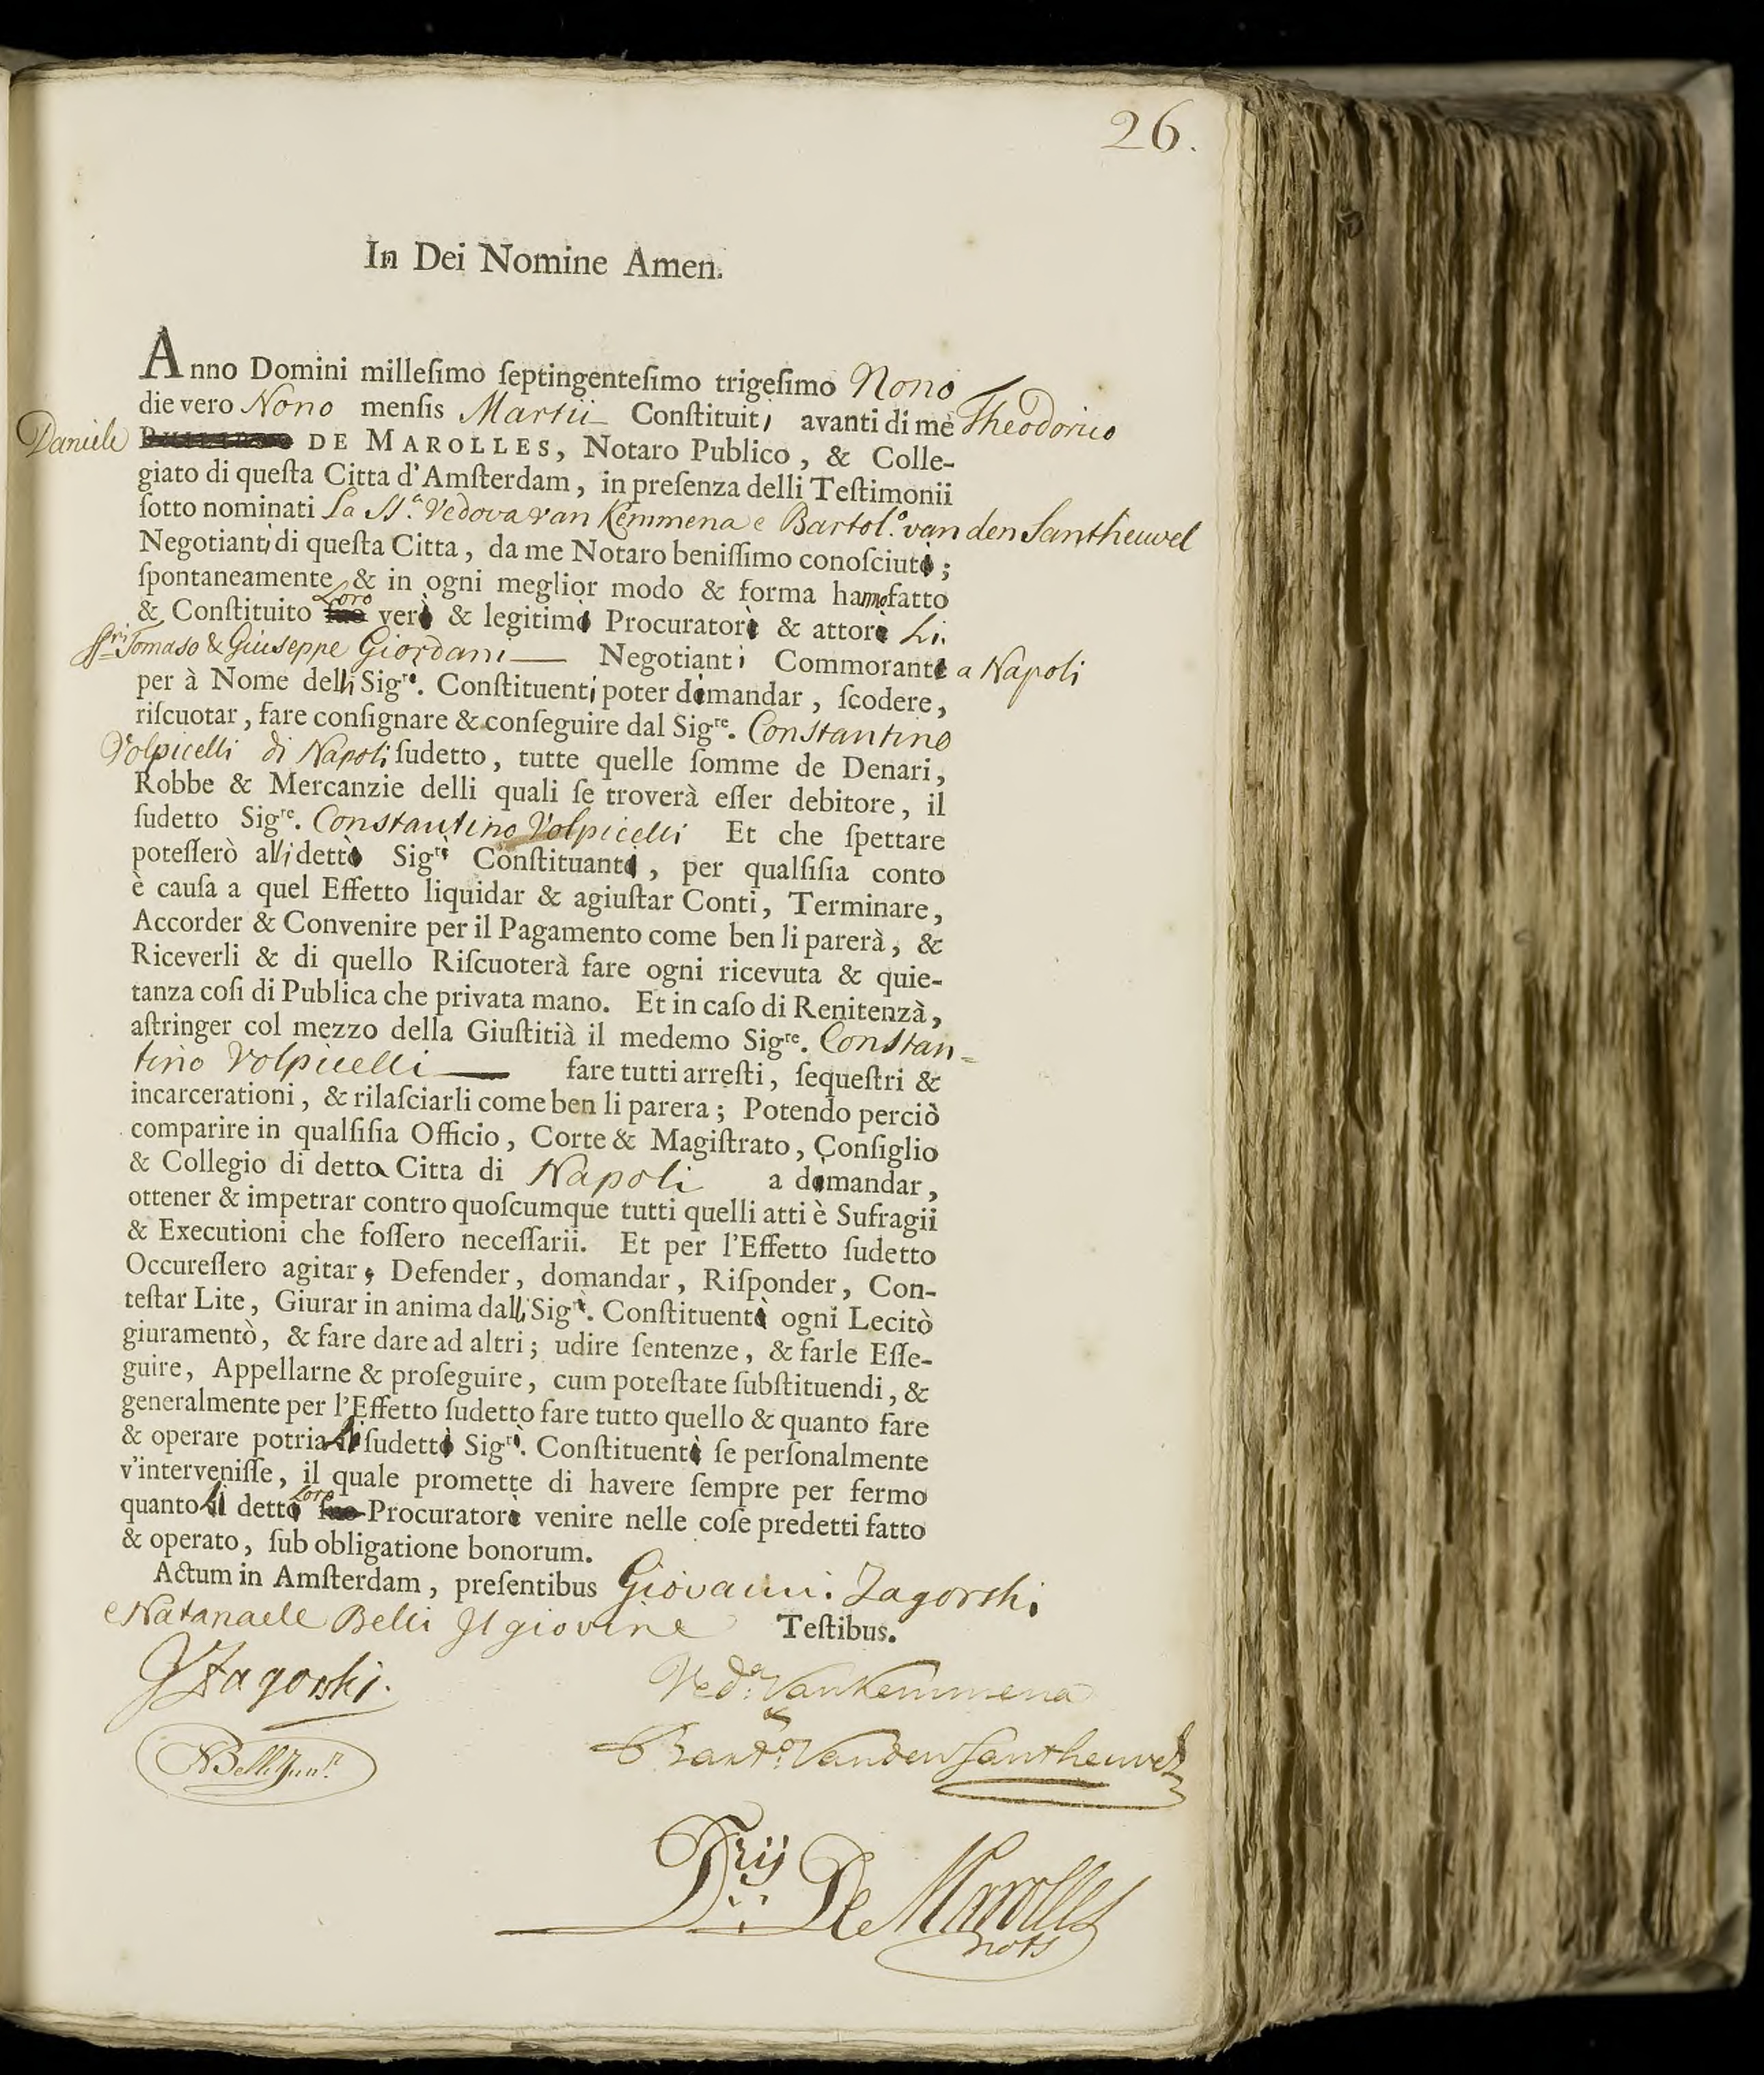 26.
In Dei Nomine Amen.
Anno Domini milleſimo ſeptingenteſimo trigeſimo Nono
die vero Nono menſis Martii Conſtituiti avanti di me Theodorico
Daniele DE MAROLLES, Notaro Publico, & Colle-
giato di queſta Citta d'Amſterdam, in preſenza delli Teſtimonii
ſotto nominati La Sr.a Vedova van Kemmena e Bartol.o van den Santheuvel
Negotianti di queſta Citta, da me Notaro beniſſimo conoſciuti;
ſpontaneamente & in ogni meglior modo & forma hanno fatto
& Conſtituito Loro veri & legitimi Procuratori & attori Li
Sſri Tomaso & Giuseppe Giordani — Negotianti Commoranti a Napoli
per à Nome delli Sigre. Conſtituenti poter dimandar, ſcodere,
riſcuotar, fare conſignare & conſeguire dal Sigre. Constantino
Volpicelli di Napoli ſudetto, tutte quelle ſomme de Denari,
Robbe & Mercanzie delli quali ſe troverà eſſer debitore, il
ſudetto Sigre. Constantino Volpicelli Et che ſpettare
poteſſerò alli detti Sigri Conſtituanti, per qualſiſia conto
è cauſa a quel Effetto liquidar & agiuſtar Conti, Terminare,
Accorder & Convenire per il Pagamento come ben li parerà, &
Riceverli & di quello Riſcuoterà fare ogni ricevuta & quie-
tanza coſi di Publica che privata mano. Et in caſo di Renitenzà,
aſtringer col mezzo della Giuſtitià il medemo Sigre. Constan=
tino Volpicelli — fare tutti arreſti, ſequeſtri &
incarcerationi, & rilaſciarli come ben li parera; Potendo perciò
comparire in qualſiſia Officio, Corte & Magiſtrato, Conſiglio
& Collegio di detta Citta di Napoli a dimandar,
ottener & impetrar contro quoſcumque tutti quelli atti è Sufragii
& Executioni che foſſero neceſſarii. Et per l'Effetto ſudetto
Occureſſero agitar, Defender, domandar, Riſponder, Con-
teſtar Lite, Giurar in anima dalli Sigri. Conſtituenti ogni Lecitò
giuramentò, & fare dare ad altri; udire ſentenze, & farle Eſſe-
guire, Appellarne & proſeguire, cum poteſtate ſubſtituendi, &
generalmente per l'Effetto ſudetto fare tutto quello & quanto fare
& operare potria Li ſudetti Sigri. Conſtituenti ſe perſonalmente
v'interveniſſe, il quale promette di havere ſempre per fermo
quanto Li detti Loro Procuratori venire nelle coſe predetti fatto
& operato, ſub obligatione bonorum.
Actum in Amſterdam, preſentibus Giovanni Zagorski
e Natanaele Belli Il giovine Teſtibus.
GZagorski.
Ved.a Van Kemmena
NBelli Junr.
Bart.o Van den Santheuvel
Drij D: De Marolles
nots